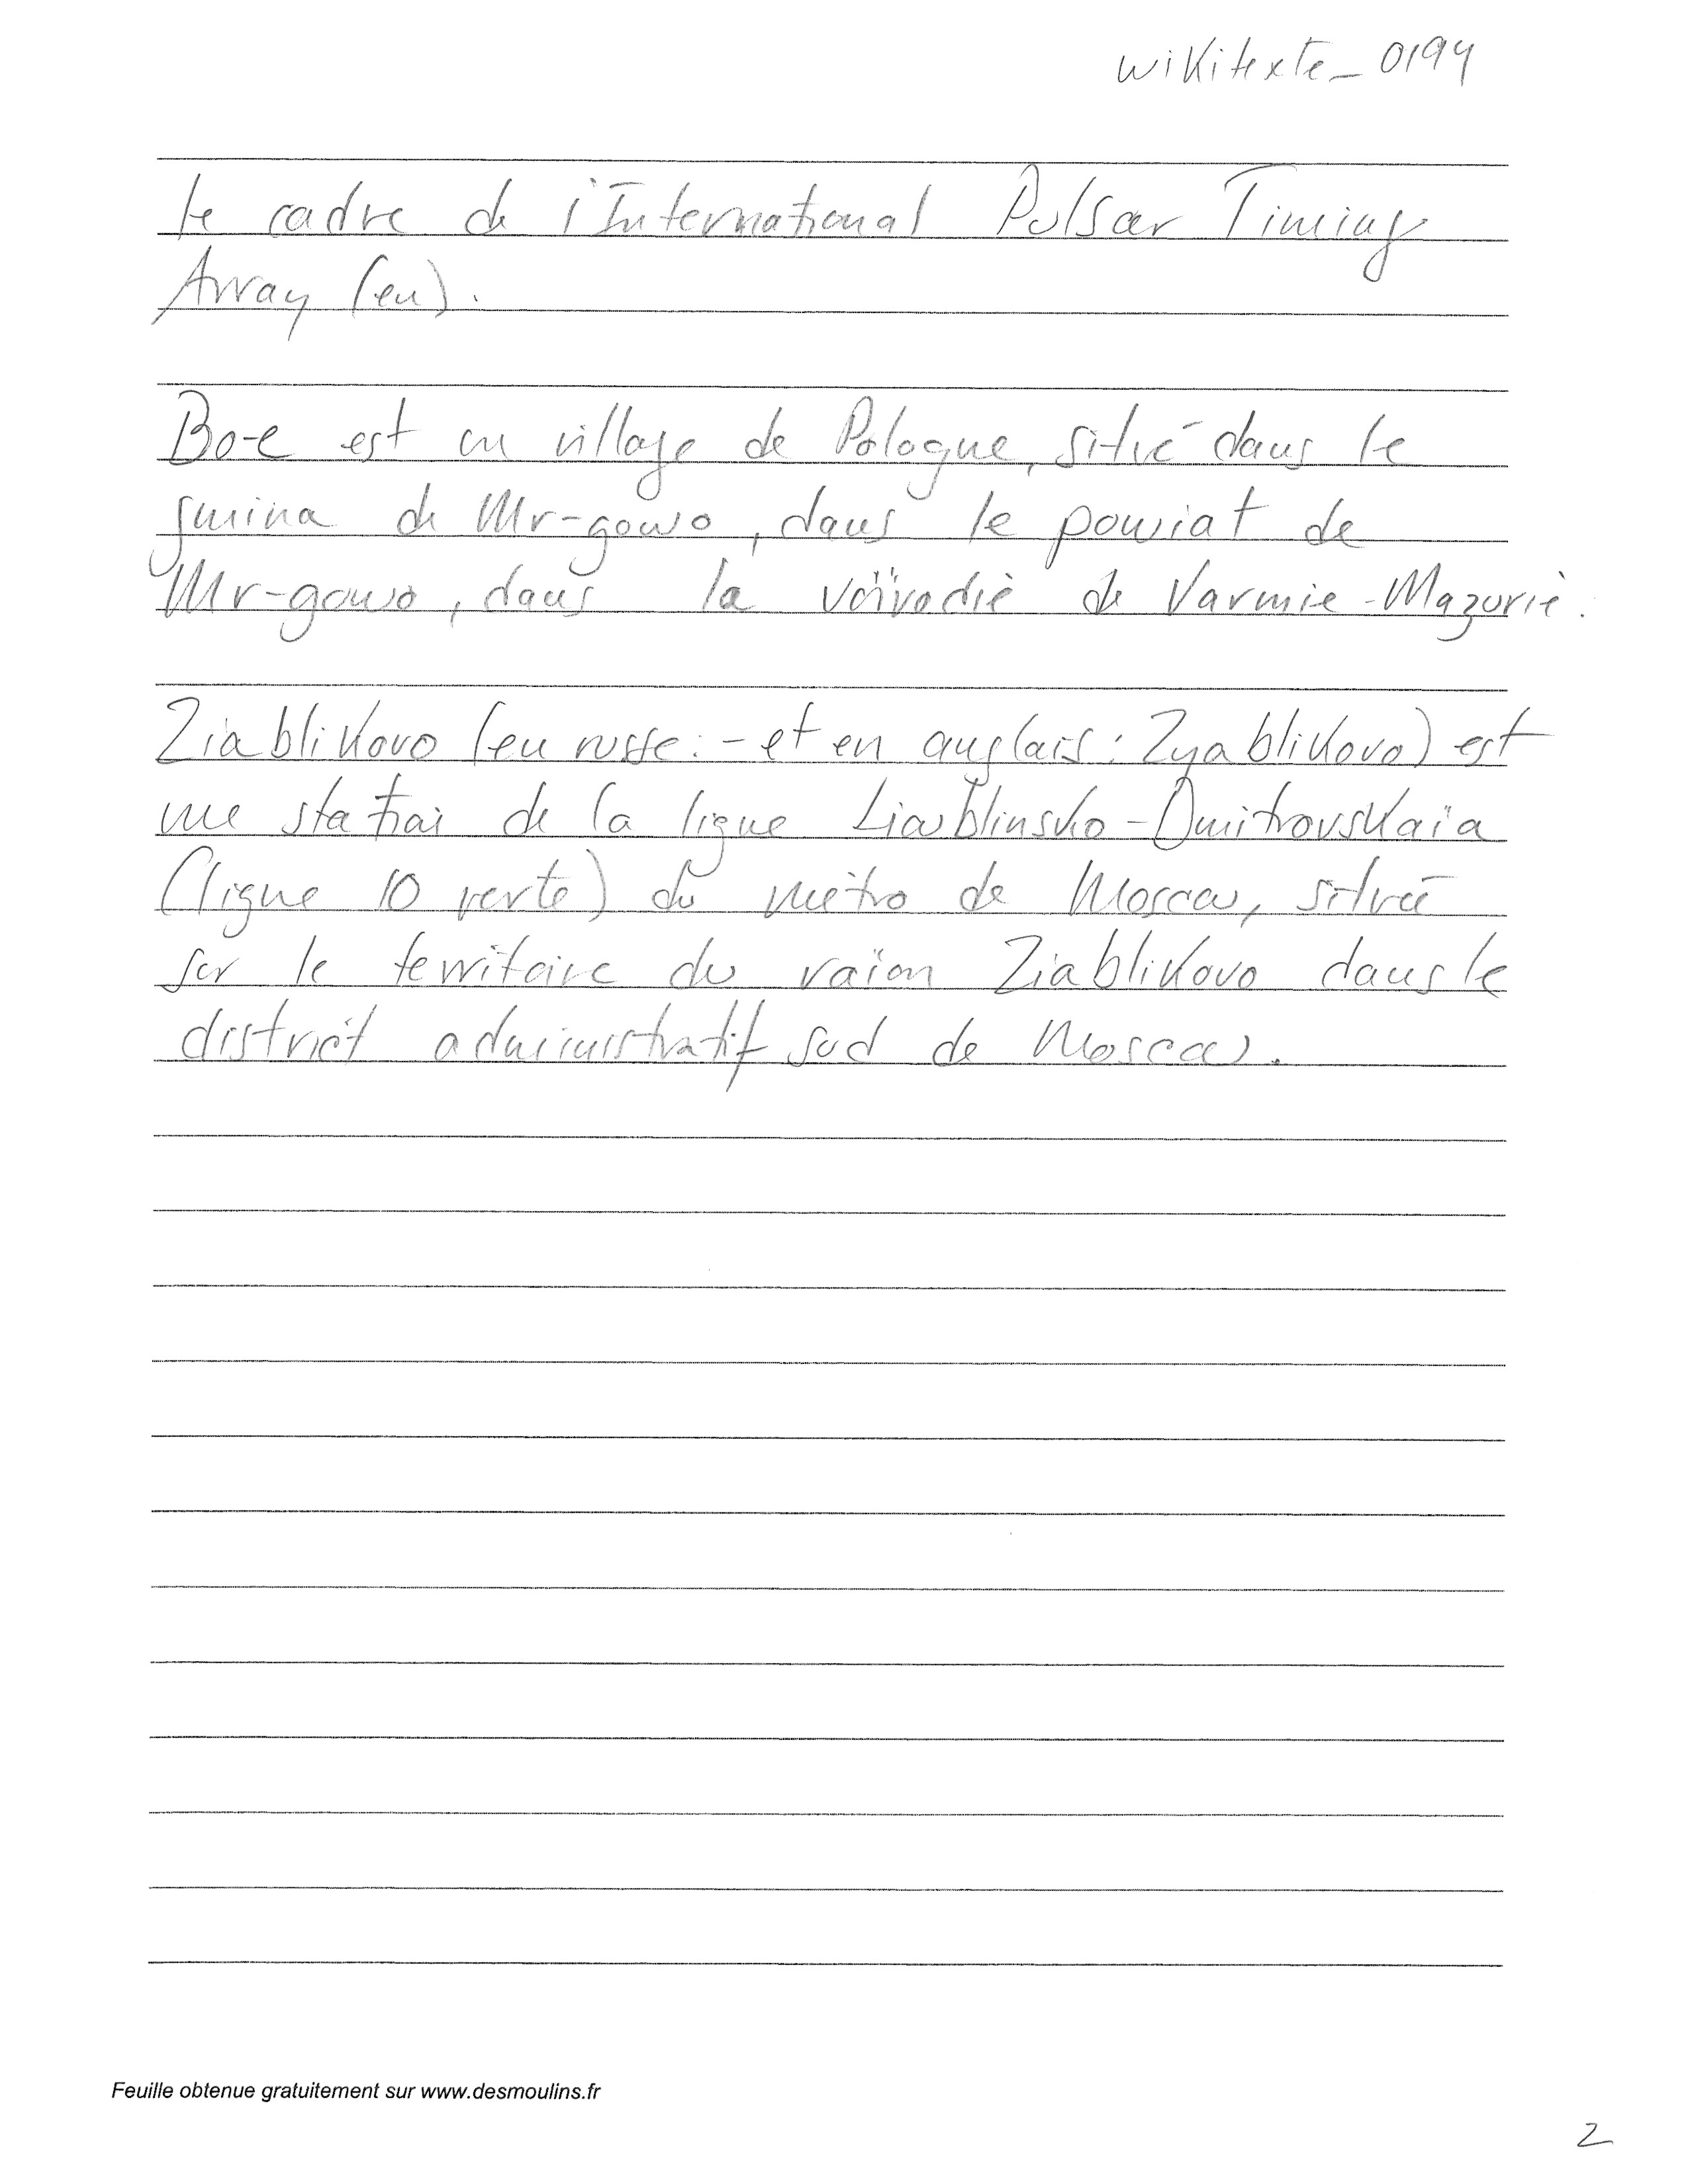 wikitexte_0194
le cadre de l'International Pulsar Timing
Array (en).
Bo-e est un village de Pologne, situé dans le
gmina de Mr-gowo, dans le powiat de
Mr-gowo, dans la voïvodie de Varmie-Mazurie.
Ziablikovo (en russe : - et en anglais : Zyablikovo) est
une station de la ligne Lioublinsko-Dmitrovskaïa
(ligne 10 verte) du métro de Moscou, située
sur le territoire du raïon Ziablikovo dans le
district administratif sud de Moscou.
Feuille obtenue gratuitement sur www.desmoulins.fr
2